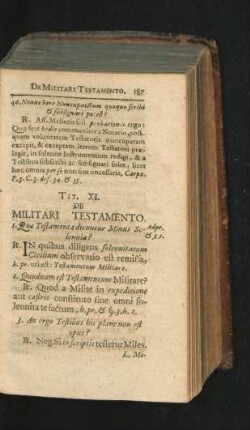 DE MILITARI TESTAMENTO. 187
46. Nonne hoc Nuncupativum quoque scribi
& subsignari potest?
R. Aff. Melioris scil. probationis ergo:
Qvo fit, hodie communiter à Notario, post-
quam voluntatem Testatoris nuncupatam
excepit, & exceptam iterum Testatori præ-
legit, in solenne Instrumentum redigi, & à
Testibus subscribi ac subsignari solet; licet
hæc omnia per se non sint necessaria, Carpz.
P. 3. C. 3. def. 34. & 35.
TIT. XI.
DE
MILITARI TESTAMENTO.
1. Quæ Testamenta dicuntur Minus So-
lennia?
& 3. I.
R. IN quibus diligens solennitatum
Civilium observatio est remissa,
h. pr. uti est: Testamentum Militare.
2. Quodnam est Testamentum Militare?
R. Quod a Milite in expeditione
aut castris constituto sine omni so-
lennitate factum, h. pr. & §. 3. h. t.
3. An ergo Testibus hic plane non est
opus?
R. Neg. Si in scriptis testetur Miles.
L. Mi-